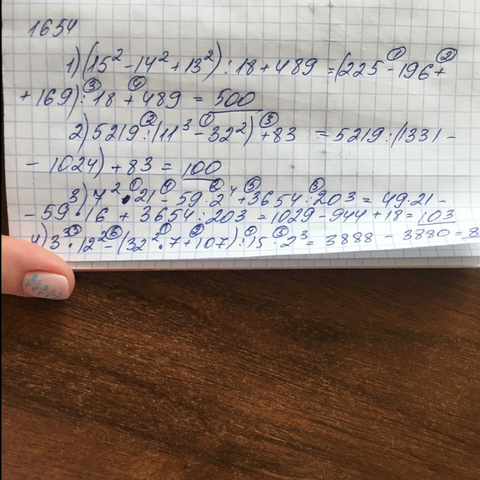 1654
1) (15² - 14² + 13²) : 18 + 489 = (225 - 196 +
+ 169) : 18 + 489 = 500
2) 5219 : (11³ - 32²) + 83 = 5219 : (1331 -
- 1024) + 83 = 100
3) 7² · 21 - 59 · 2⁴ + 3654 : 203 = 49 · 21 -
- 59 · 16 + 3654 : 203 = 1029 - 944 + 18 = 103
4) 3³ · 12² - (32² · 7 + 107) : 15 · 2³ = 3888 - 3880 =